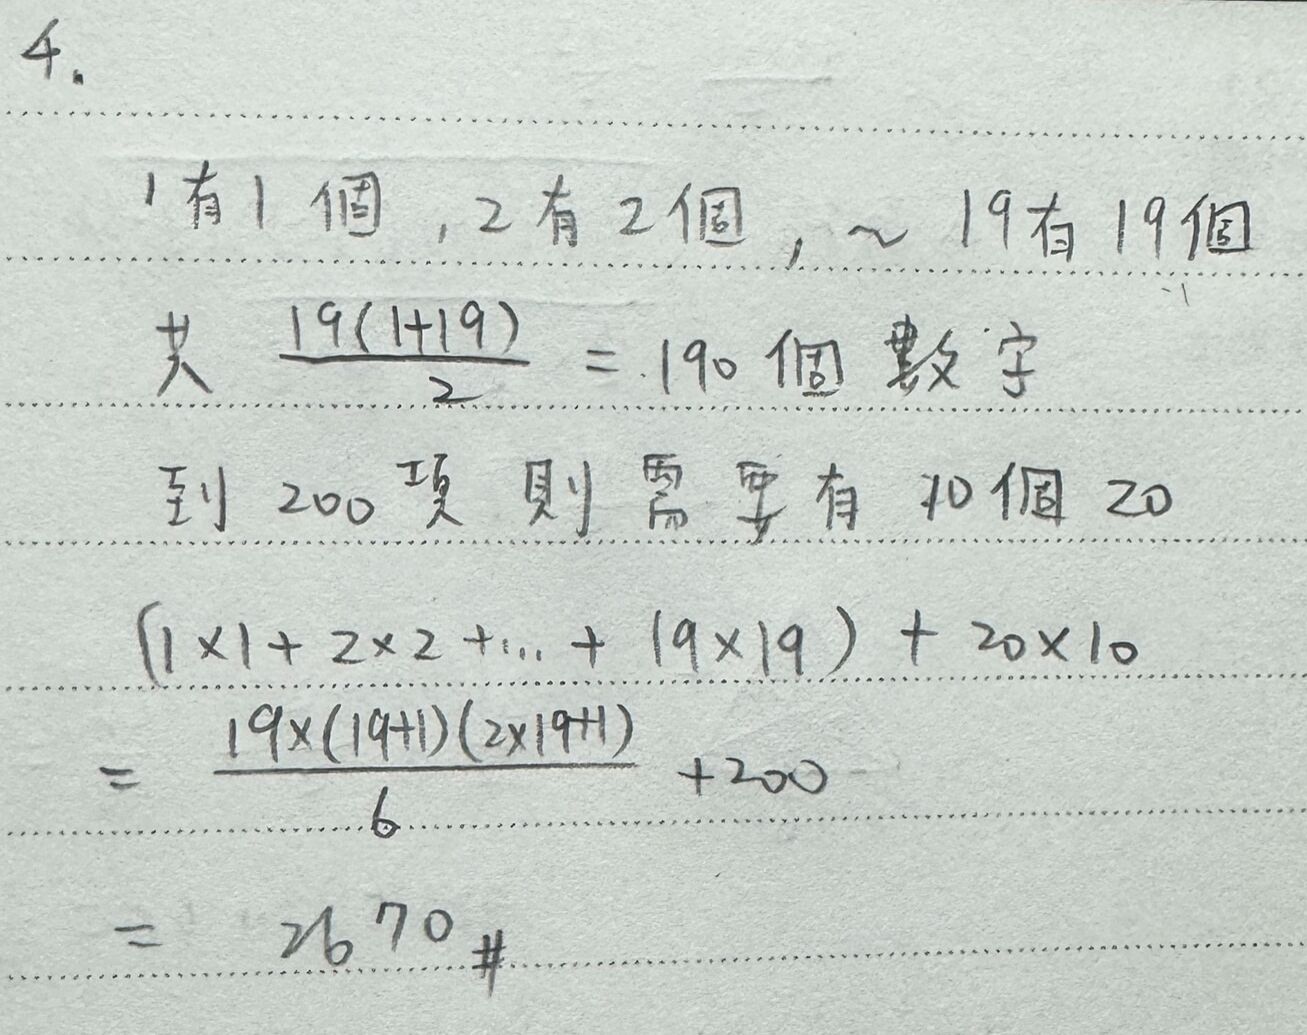 4.
1有1個,2有2個,~19有19個
共 19(1+19)/2 = 190個數字
到200項則需要有10個20
(1×1+2×2+...+19×19)+20×10
= 19×(19+1)(2×19+1)/6 +200
= 2670#